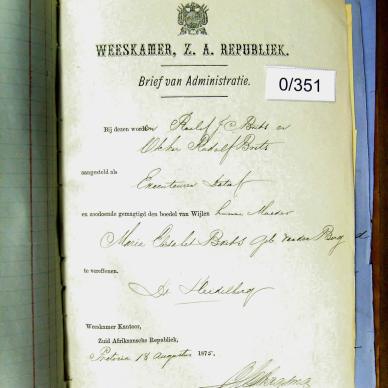 WEESKAMER, Z. A. REPUBLIEK.
Brief van Administratie.
0/351
Bij dezen worden Roelof J C Botes en
Okker Rudolf Botes
aangesteld als
Executeuren Datief
en zoodoende gemagtigd den boedel van Wijlen hunne Moeder
Maria Elisabet Botes Geb van den Berg
te vereffenen.
Dt Heidelberg
Weeskamer Kantoor,
Zuid Afrikaansche Republiek,
Pretoria 18 Augustus 1875.